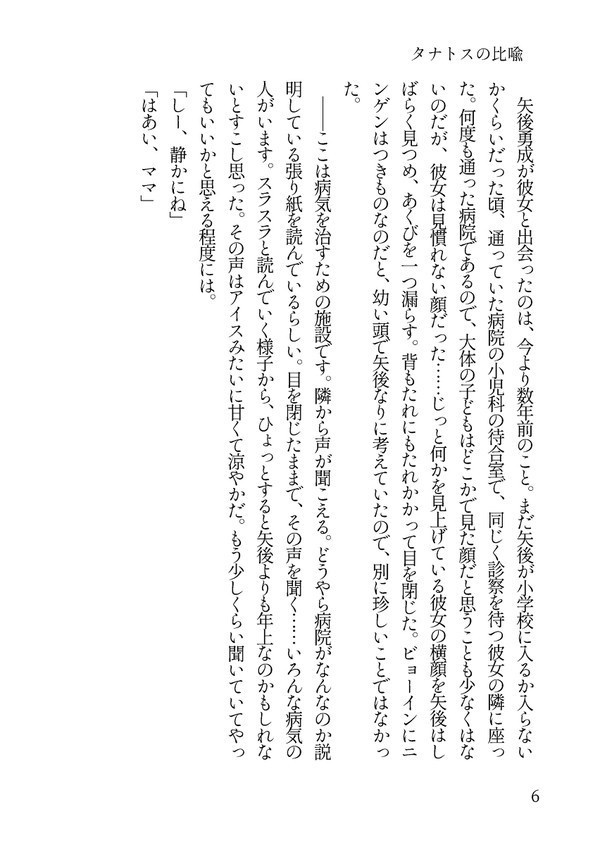 タナトスの比喩
　矢後勇成が彼女と出会ったのは、今より数年前のこと。まだ矢後が小学校に入るか入らない
かくらいだった頃、通っていた病院の小児科の待合室で、同じく診察を待つ彼女の隣に座っ
た。何度も通った病院であるので、大体の子どもはどこかで見た顔だと思うことも少なくはな
いのだが、彼女は見慣れない顔だった……じっと何かを見上げている彼女の横顔を矢後はし
ばらく見つめ、あくびを一つ漏らす。背もたれにもたれかかって目を閉じた。ビョーインにニ
ンゲンはつきものなのだと、幼い頭で矢後なりに考えていたので、別に珍しいことではなかっ
た。
　――ここは病気を治すための施設です。隣から声が聞こえる。どうやら病院がなんなのか説
明している張り紙を読んでいるらしい。目を閉じたままで、その声を聞く……いろんな病気の
人がいます。スラスラと読んでいく様子から、ひょっとすると矢後よりも年上なのかもしれな
いとすこし思った。その声はアイスみたいに甘くて涼やかだ。もう少しくらい聞いていてやっ
てもいいかと思える程度には。
「しー、静かにね」
「はあい、ママ」
6